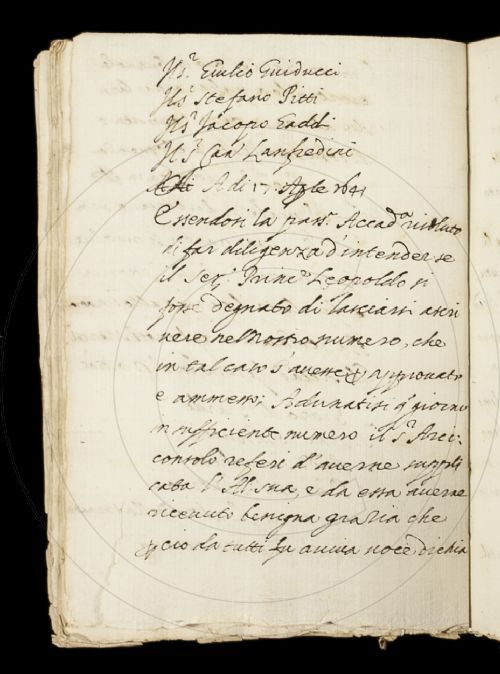 Il S.r Giulio Guiducci
Il S.r Stefano Pitti
Il S.r Jacopo Gaddi
Il S.r Can.co Lanfredini
A di 17. Ap.le 1641
Essendosi la pass.ta Accad.a risoluto
di far diligenza d'intender se
il Ser.mo Princ.e Leopoldo si
fosse degnato di lasciarsi ascri
vere nel nostro numero, che
in tal caso s'avesse p approvato
e ammesso; Adunatisi q.o giorno
in sufficiente numero il S.r Arci:
consolo referi d'averne suppli
cata l'A. sua, e da essa averne
ricevuto benigna grazia che
p cio da tutti fu a viva voce dichia